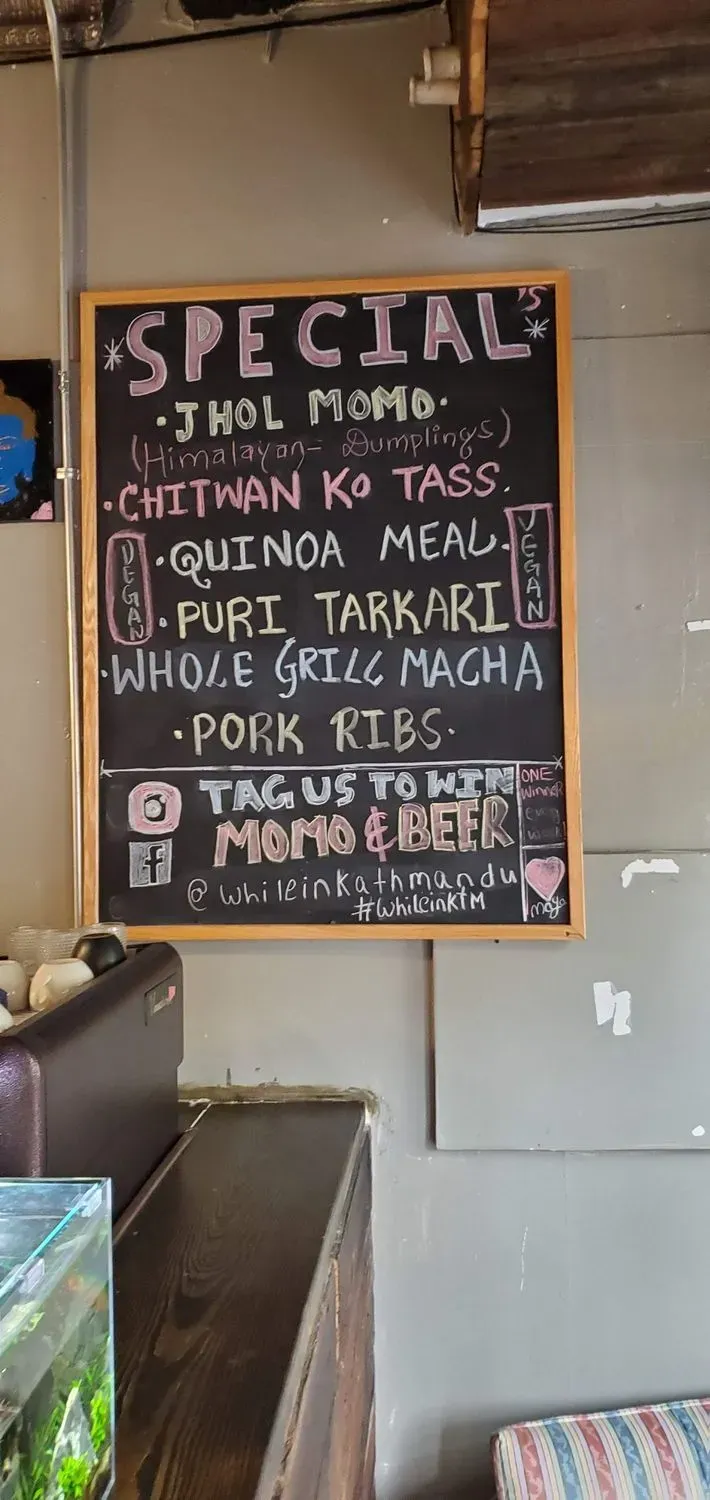 SPECIAL'S
·JHOL MOMO·
(Himalayan- Dumplings)
·CHITWAN KO TASS.
·QUINOA MEAL·
VEGAN
VEGAN
·PURI TARKARI
·WHOLE GRILL MACHA
·PORK RIBS·
TAG US TO WIN
MOMO & BEER
@whileinkathmandu
#WhileinKTM
ONE
Winner
every
week!
maya